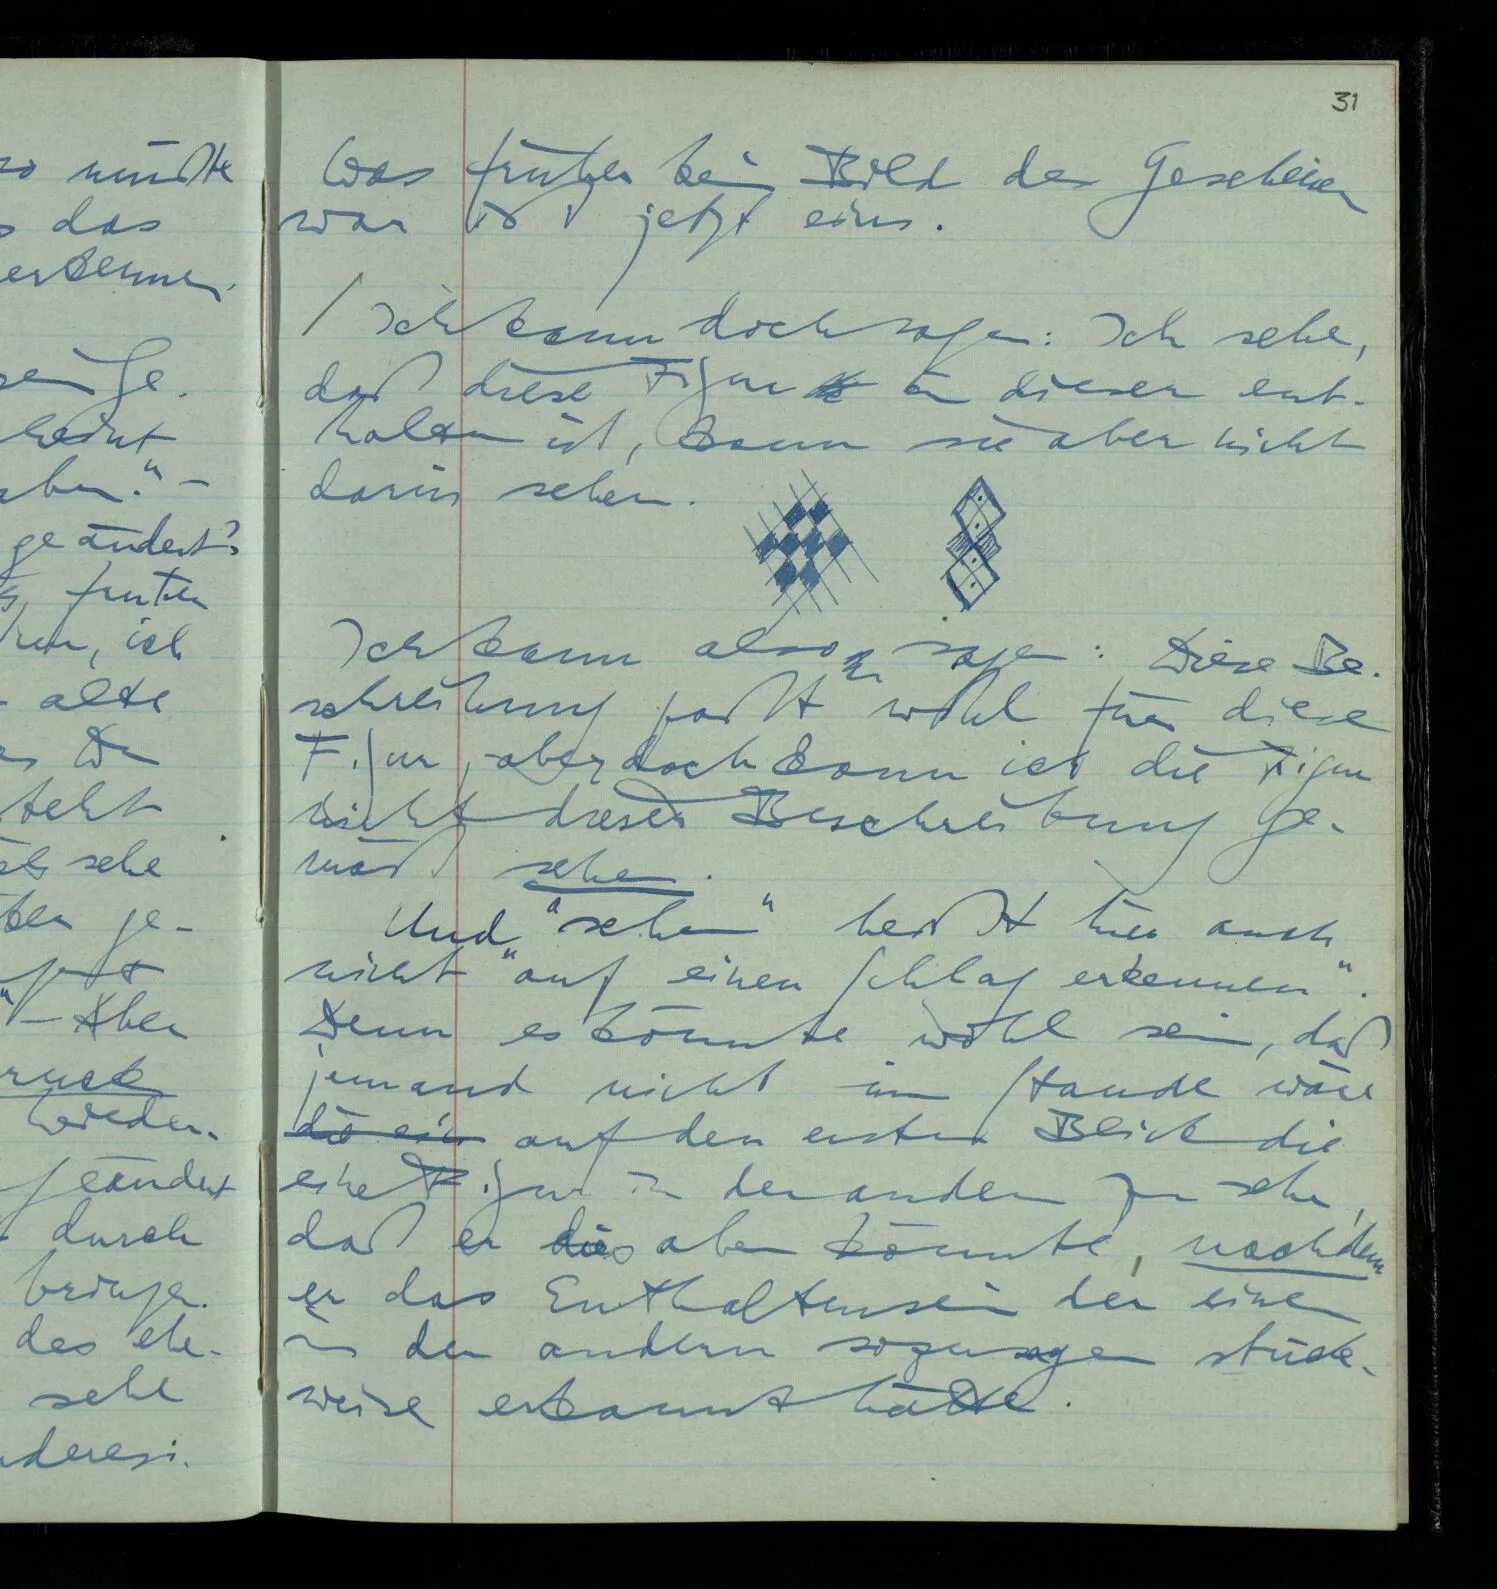 31
so müßte
das
erkennen.
ge-
scheint
aber." –
geändert?
früher
ich
alte
Du
steht
sehe
ge-
" – Aber
druck
wieder-
geändert
durch
bringen.
des ehe-
sehe
anderes.
Was früher kein Bild des Gesehenen
war ist jetzt eins.
/ Ich kann doch sagen: Ich sehe,
daß diese Figur in dieser ent-
halten ist, kann sie aber nicht
darin sehen.
Ich kann also sagen: Diese Be-
schreibung paßt wohl für diese
Figur, aber doch kann ich die Figur
nicht dieser Beschreibung ge-
mäß sehen.
Und "sehen" heißt hier auch
nicht "auf einen Schlag erkennen".
Denn es könnte wohl sein, daß
jemand nicht im Stande wäre
die ein auf den ersten Blick die
eine Figur in der andern zu sehen,
daß er dies aber könnte, nachdem
er das Enthaltensein der einen
in der andern sozusagen stück-
weise erkannt hätte.